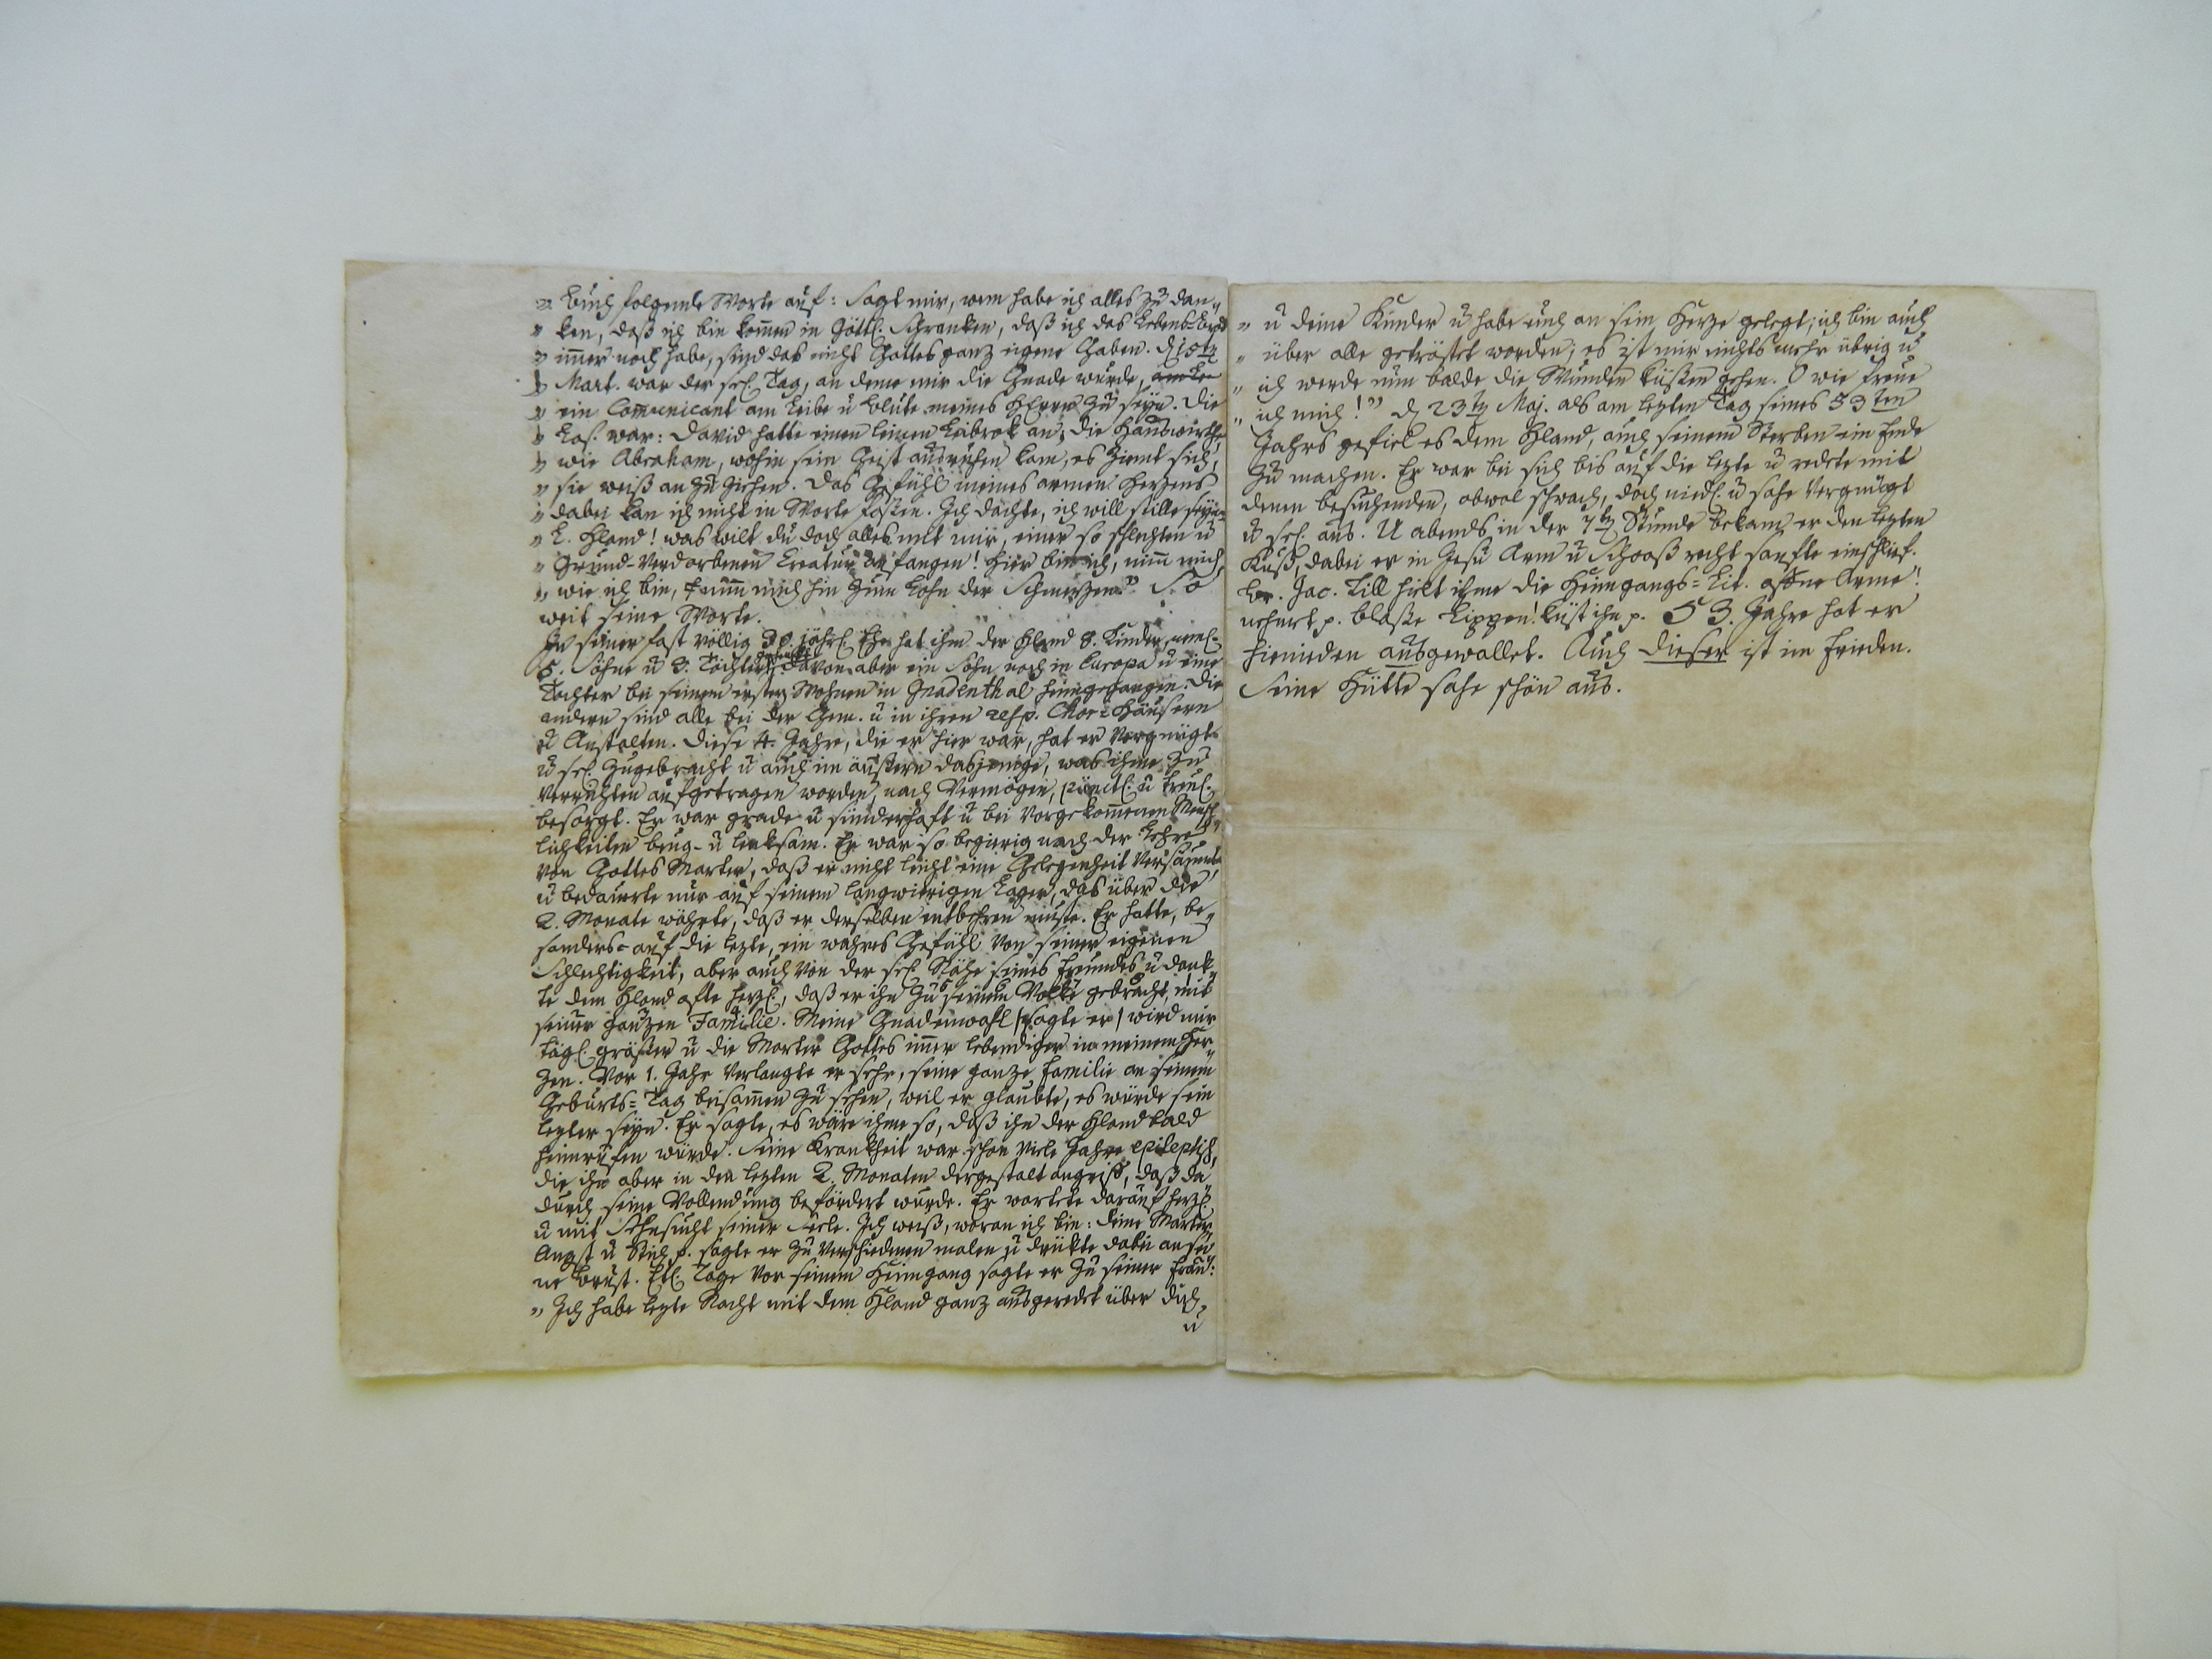 " Buch folgende Worte auf: Sagt mir, wem habe ich alles zu dan-
" ken, daß ich bin komen in Göttl. Schranken, daß ich das Lebens-Brod
" imer noch habe, sind das nicht Gottes ganz eigene Gaben. d 15ten
" Mart. war der sel. Tag, an deme mir die Gnade wurde,
" ein Communicant am Leibe u Blute meines HErrn zu seyn. Die
" Los. war: David hatte einen leinen Leibrok an; die Hauswirthe
" wie Abraham, wohin sein Geist ausruhen kam, es ziemt sich,
" sie weiß an zu ziehen. Das Gefühl meines armen Herzens
" dabei kan ich nicht in Worte faßen. Ich dachte, ich will stille seyn
" L. Hland! was wilt du doch alles mit mir, einer so schlechten u
" Grund-Verdorbenen Creatur anfangen! Hier bin ich, nim mich,
" wie ich bin, u nimm mich hin zum Lohn der Schmerzen." So
weit seine Worte.
In seiner fast völlig 30 jährl. Ehe hat ihm der Hland 8. Kinder, neml.
5. Söhne u 3. Töchter davon aber ein Sohn noch in Europa u eine
Tochter bei seinem ersten Wohnen in Gnadenthal heimgegangen. Die
andern sind alle bei der Gem. u in ihren resp. Chor-Häusern
u Anstalten. Diese 4. Jahre, die er hier war, hat er Vergnügt
u sel. zugebracht u auch im äußern dasjenige, was ihme zu
verrichten aufgetragen worden, nach Vermögen, pünctl. u treul.
besorgt. Er war grade u sünderhaft u bei Vorgekommenen Mensch-
lichkeiten beug- u lenksam. Er war so begierig nach der Lehre
von Gottes Marter, daß er nicht leicht eine Gelegenheit versäumte
u bedauerte nur auf seinem langwierigen Lager, das über die
2. Monate währte, daß er derselben entbehren muste. Er hatte, be-
sonders auf die lezte, ein wahres Gefühl von seiner eigenen
Schlechtigkeit, aber auch von der sel. Nähe seines Freundes u dank-
te dem Hland ofte herzl., daß er ihn zu seinem Volke gebracht, mit
seiner ganzen Familie. Meine Gnadenwahl (sagte er) wird mir
tägl. größer u die Marter Gottes imer lebendiger in meinem Her-
zen. Vor 1. Jahr verlangte er sehr, seine ganze Familie an seinem
Geburts-Tag beisammen zu sehen, weil er glaubte, es würde sein
lezter seyn. Er sagte, es wäre ihme so, daß ihn der Hland bald
heimrufen würde. Seine Krankheit war schon viele Jahre epileptisch,
die ihn aber in den lezten 2. Monaten dergestalt angriff, daß da-
durch seine Vollendung befördert wurde. Er wartete darauf herzl.
u mit Sehnsucht seiner Seele. Ich weiß, woran ich bin: deine Marter
Angst u Stich p. sagte er zu verschiedenen malen u drükte dabei an sei-
ne Brust. Etl. Tage vor seinem Heimgang sagte er zu seiner Frau:
" Ich habe lezte Nacht mit dem Hland ganz ausgeredet über dich,
u
" u deine Kinder u habe euch an sein Herze gelegt; ich bin auch
" über alle getröstet worden; es ist mir nichts mehr übrig u
" ich werde nun balde die Wunden küßen gehen. O wie freue
" ich mich!" d 23ten Maj. als am lezten Tag seines 53ten
Jahrs gefiel es dem Hland, auch seinem Sterben ein Ende
zu machen. Er war bei sich bis auf die lezte u redete mit
denen besuchenden, obwol schwach, doch niedl. u sahe Vergnügt
u sel. aus. U abends in der 7ten Stunde bekam er den lezten
Kuß, dabei er in Jesu Arm u Schooß recht sanfte einschlief.
Br. Jac. Till hielt ihme die Heimgangs-Lit. offne Arme!
nehmet p. blaße Lippen! küst ihn p. 53. Jahre hat er
hienieden ausgewallet. Auch dieser ist im Frieden.
Seine Hütte sahe schön aus.